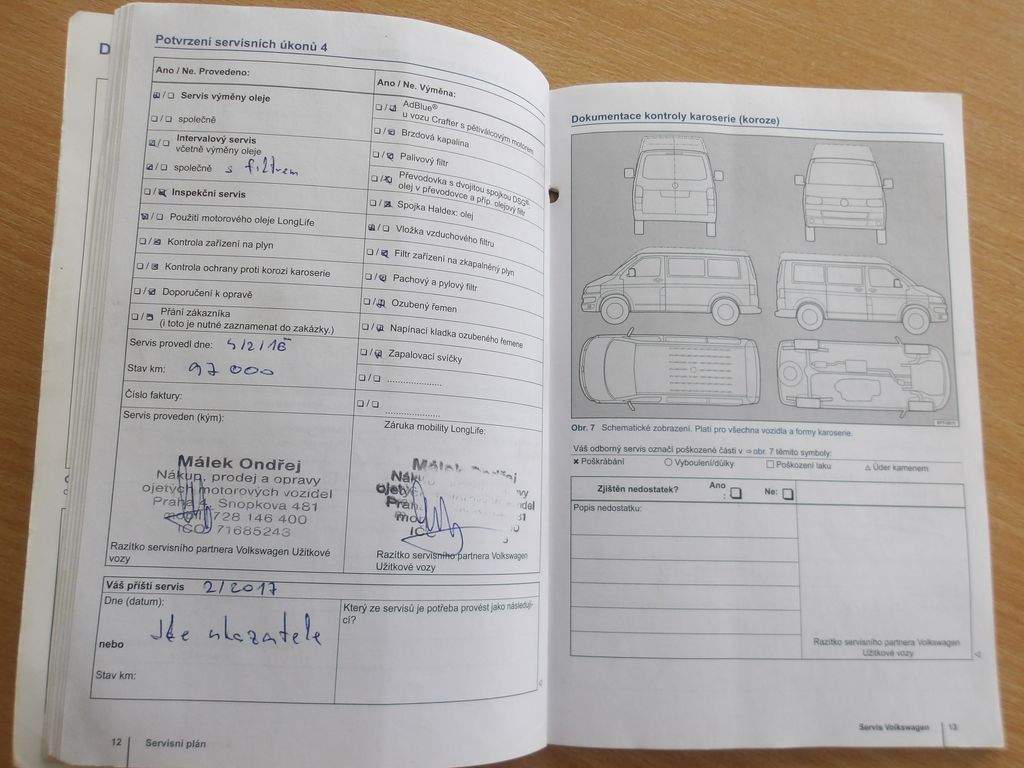 D
Potvrzení servisních úkonů 4
Ano / Ne. Provedeno:
Servis výměny oleje
společně
Intervalový servis
včetně výměny oleje
společně s filtrem
Inspekční servis
Použití motorového oleje LongLife
Kontrola zařízení na plyn
Kontrola ochrany proti korozi karoserie
Doporučení k opravě
Přání zákazníka
(i toto je nutné zaznamenat do zakázky.)
Servis provedl dne:
Stav km: 97 000
Číslo faktury:
Servis proveden (kým):
Málek Ondřej
Nákup, prodej a opravy
ojetých motorových vozidel
Praha 4, Snopkova 481
mobil 728 146 400
IČO: 71685243
Razítko servisního partnera Volkswagen Užitkové
vozy
Ano / Ne. Výměna:
AdBlue®
u vozu Crafter s pětiválcovým motorem
Brzdová kapalina
Palivový filtr
Převodovka s dvojitou spojkou DSG®:
olej v převodovce a příp. olejový filtr
Spojka Haldex: olej
Vložka vzduchového filtru
Filtr zařízení na zkapalněný plyn
Pachový a pylový filtr
Ozubený řemen
Napínací kladka ozubeného řemene
Zapalovací svíčky
....................
....................
Záruka mobility LongLife:
Málek Ondřej
Razítko servisního partnera Volkswagen
Užitkové vozy
Váš příští servis 2/2017
Dne (datum):
nebo
Stav km:
Který ze servisů je potřeba provést jako následují-
cí?
12 Servisní plán
Dokumentace kontroly karoserie (koroze)
Obr. 7 Schematické zobrazení. Platí pro všechna vozidla a formy karoserie.
Váš odborný servis označí poškozené části v ⇒ obr. 7 těmito symboly:
× Poškrábání ○ Vyboulení/důlky □ Poškození laku △ Úder kamenem
Zjištěn nedostatek? Ano : Ne:
Popis nedostatku:
Razítko servisního partnera Volkswagen
Užitkové vozy
Servis Volkswagen 13